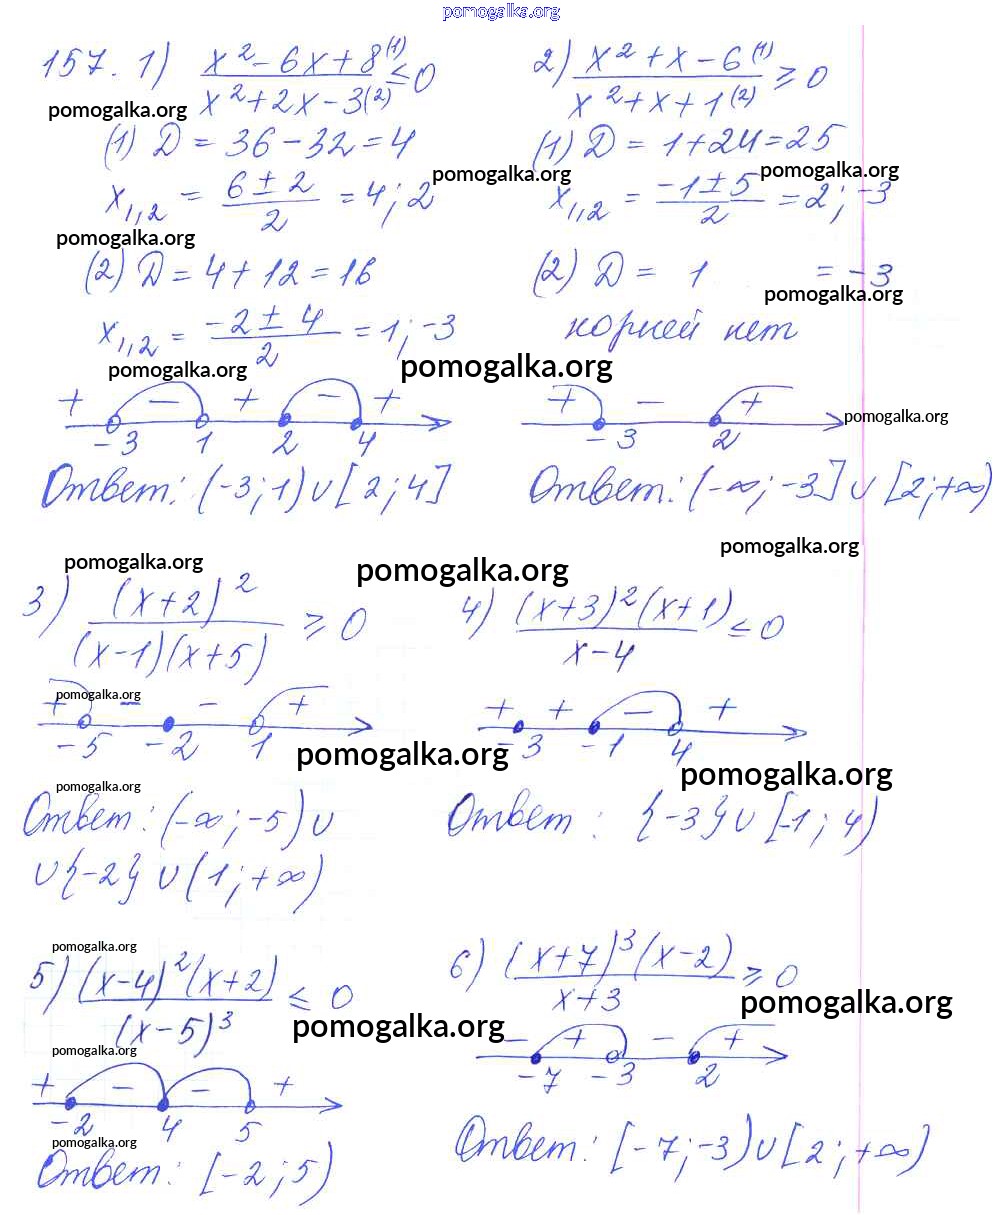 pomogalka.org
157. 1) (x² - 6x + 8⁽¹⁾)/(x² + 2x - 3⁽²⁾) ≤ 0
pomogalka.org
(1) D = 36 - 32 = 4
x₁,₂ = (6 ± 2)/2 = 4; 2
pomogalka.org
pomogalka.org
(2) D = 4 + 12 = 16
x₁,₂ = (-2 ± 4)/2 = 1; -3
pomogalka.org
+ - + - +
-3 1 2 4
Ответ: (-3; 1) ∪ [2; 4]
2) (x² + x - 6⁽¹⁾)/(x² + x + 1⁽²⁾) ≥ 0
(1) D = 1 + 24 = 25
pomogalka.org
x₁,₂ = (-1 ± 5)/2 = 2; -3
(2) D = 1 = -3
pomogalka.org
корней нет
pomogalka.org
+ - +
pomogalka.org
-3 2
Ответ: (-∞; -3] ∪ [2; +∞)
pomogalka.org
pomogalka.org
pomogalka.org
3) (x+2)²/((x-1)(x+5)) ≥ 0
pomogalka.org
+ - - +
-5 -2 1
pomogalka.org
pomogalka.org
Ответ: (-∞; -5) ∪
∪ {-2} ∪ (1; +∞)
4) ((x+3)²(x+1))/(x-4) ≤ 0
+ + - +
-3 -1 4
pomogalka.org
Ответ: {-3} ∪ [-1; 4)
pomogalka.org
5) ((x-4)²(x+2))/(x-5)³ ≤ 0
pomogalka.org
pomogalka.org
+ - - +
-2 4 5
pomogalka.org
Ответ: [-2; 5)
6) ((x+7)³(x-2))/(x+3) ≥ 0
pomogalka.org
- + - +
-7 -3 2
Ответ: [-7; -3) ∪ [2; +∞)